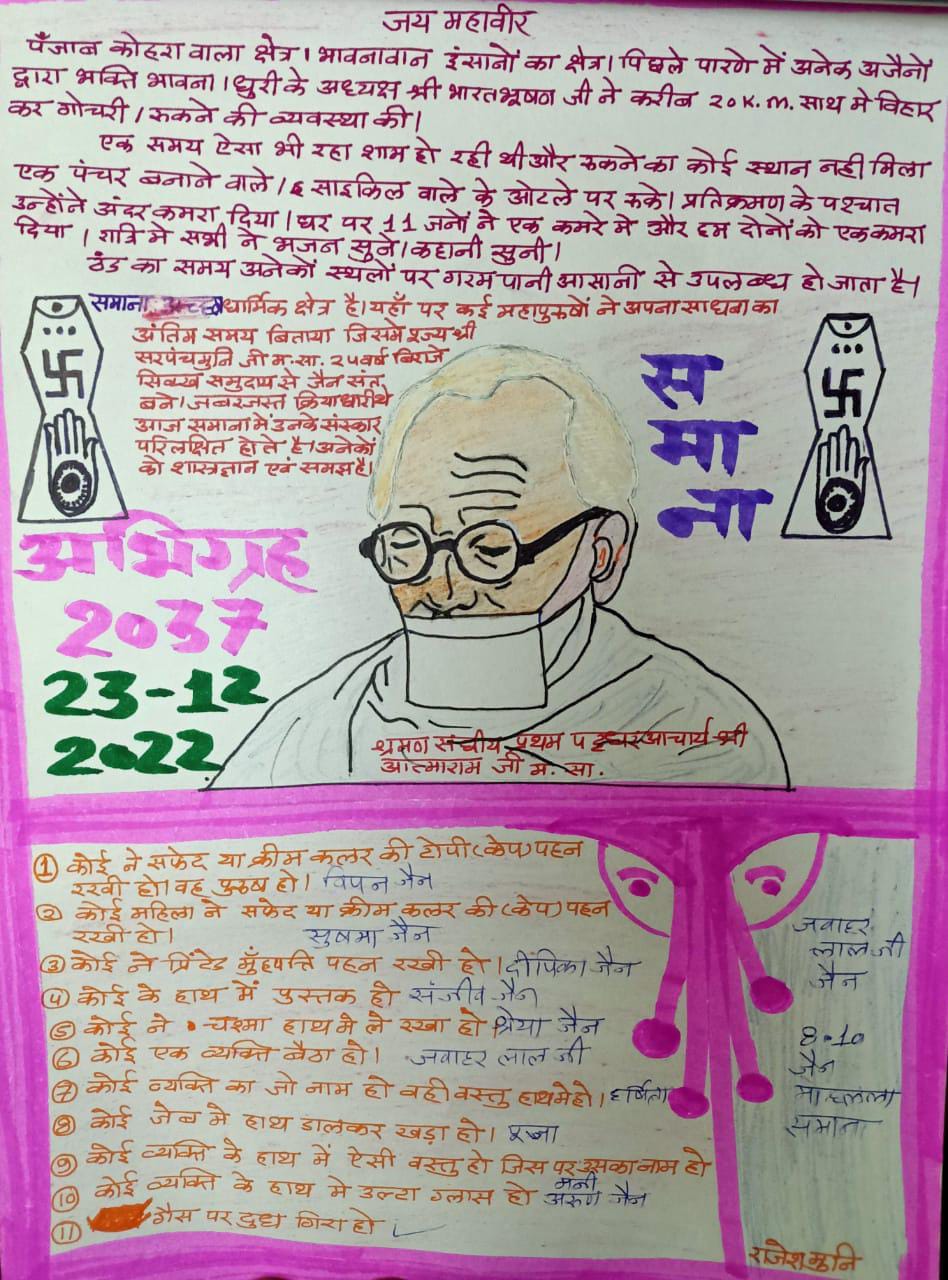 जय महावीर
पँजाब कोहरा वाला क्षेत्र। भावनावान इंसानों का क्षेत्र। पिछले पारणे में अनेक अजैनों
द्वारा भक्ति भावना। धुरी के अध्यक्ष श्री भारतभूषण जी ने करीब 20 K.m. साथ मे विहार
कर गोचरी / रुकने की व्यवस्था की।
एक समय ऐसा भी रहा शाम हो रही थी और रुकने का कोई स्थान नही मिला
एक पंचर बनाने वाले। साइकिल वाले के ओटले पर रुके। प्रतिक्रमण के पश्चात
उन्होंने अंदर कमरा दिया। घर पर 11 जनों ने एक कमरे मे और हम दोनों को एक कमरा
दिया। रात्रि मे सभी ने भजन सुने। कहानी सुनी।
ठंड का समय अनेकों स्थलों पर गरम पानी आसानी से उपलब्ध हो जाता है।
समाना धार्मिक क्षेत्र है। यहाँ पर कई महापुरुषों ने अपना साधना का
अंतिम समय बिताया जिसमे पूज्य श्री
सरपंचमुनि जी म.सा. 25 वर्ष बिराजे
सिक्ख समुदाय से जैन संत
बने। जबरजस्त क्रियाधारी थे
आज समाना में उनके संस्कार
परिलक्षित होते है। अनेकों
को शास्त्रज्ञान एवं समझ है।
स
मा
ना
अभिग्रह
2037
23-12
2022
श्रमण संघीय प्रथम पट्टधर आचार्य श्री
आत्माराम जी म. सा.
① कोई ने सफेद या क्रीम कलर की टोपी (केप) पहन
रखी हो। वह पुरुष हो। विपन जैन
② कोई महिला ने सफेद या क्रीम कलर की (केप) पहन
रखी हो। सुषमा जैन
③ कोई ने प्रिंटेड मुँहपत्ति पहन रखी हो। दीपिका जैन
④ कोई के हाथ में पुस्तक हो संजीव जैन
⑤ कोई ने चश्मा हाथ मे ले रखा हो श्रेया जैन
⑥ कोई एक व्यक्ति बैठा हो। जवाहर लाल जी
⑦ कोई व्यक्ति का जो नाम हो वही वस्तु हाथ मे हो। हर्षिता
⑧ कोई जेब मे हाथ डालकर खड़ा हो। पूजा
⑨ कोई व्यक्ति के हाथ में ऐसी वस्तु हो जिस पर उसका नाम हो
मनी
⑩ कोई व्यक्ति के हाथ मे उल्टा ग्लास हो अरुण जैन
⑪ गैस पर दुध गिरा हो
जवाहर
लाल जी
जैन
8-10
जैन
मोहल्ला
समाना
राजेश मुनि